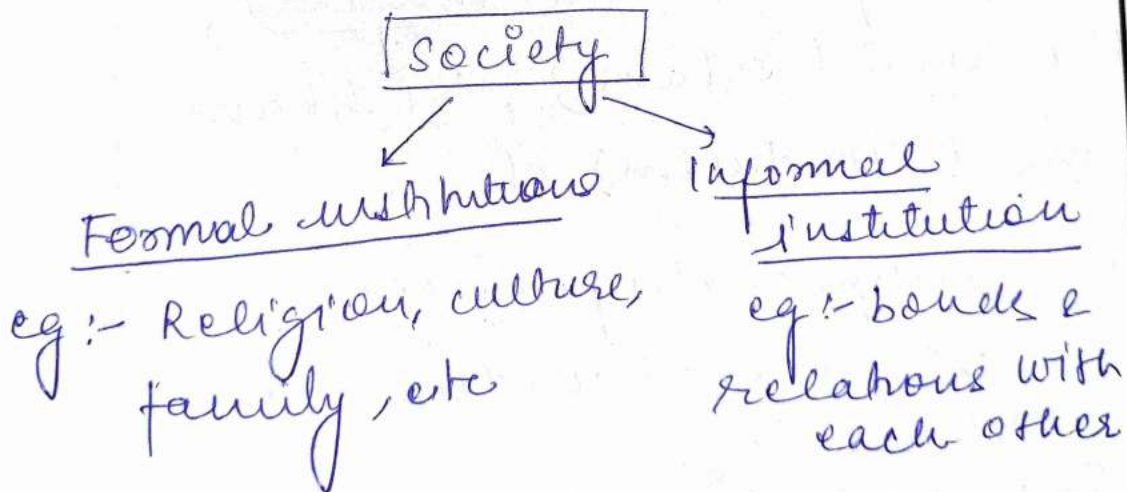 Society
Formal institutions
eg:- Religion, culture,
family, etc
Informal
institution
eg:- bonds &
relations with
each other